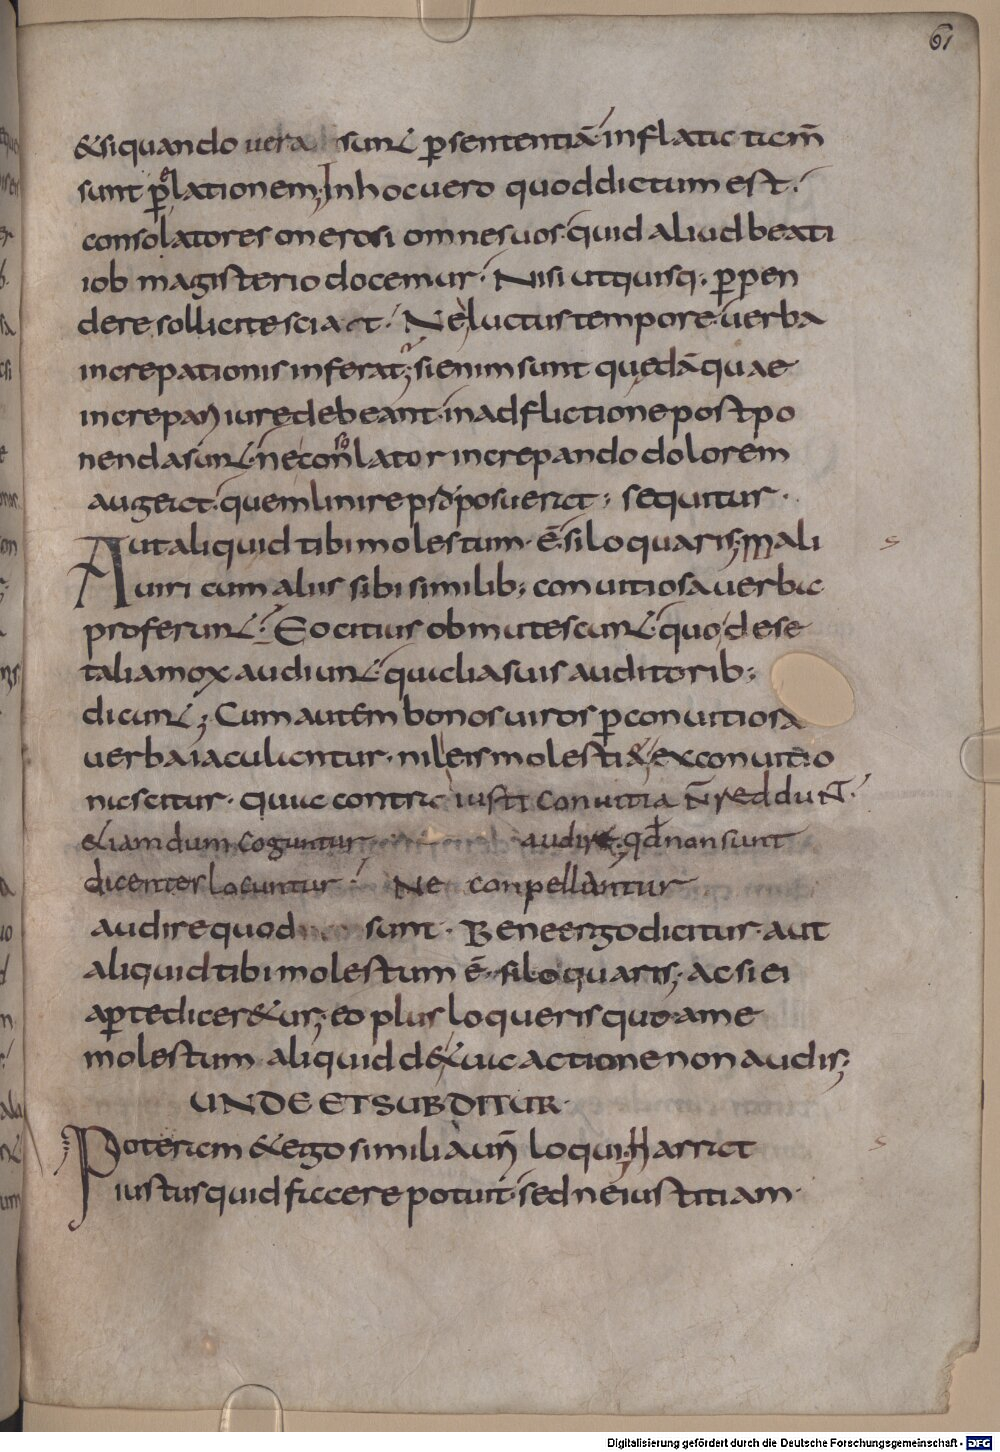 61
&siquando vera sunt p sententiā inflatic ticm̄
sunt p elationem; In hoc uero quod dictum est.
consolatores onerosi omnes uos. quid aliud beati
iob magisterio docemur. Nisi ut quisq; perpen
dere sollicite sciat. Ne luctus tempore uerba
increpationis inferat; si enim sunt quędā quae
increpari iure debeant. in adflictione postpo
nenda sunt. ne consolator increpando dolorem
augeat. quem linire p̄posuerat; sequitur.
Aut aliquid tibi molestum ē si loquaris; Mali
uiri cum aliis sibi similib; conuitiosa uerba
proferunt. Eo citius obmutescunt. quo de se
talia mox audiunt. qualia suis auditorib;
dicunt; Cum autem bonos uiros p conuitiosa
uerba iaculantur. nil eis molestiae ex conuitio
nascitur. quia contra iusti conuitia ñ reddunt.
& iam dum coguntur audire; qd non sunt
dicenter locuntur. Ne conpellantur
audire quod sunt. Bene ergo dicitur. aut
aliquid tibi molestum ē. si loquaris; ac si ei
apte diceretur; eo plus loqueris quo a me
molestum aliquid de tua actione non audis;
UNDE ET SUBDITUR.
Poteram & ego similia uri loqui; Harrat
iustus quid facere potuit. sed ne iustitiam
Digitalisierung gefördert durch die Deutsche Forschungsgemeinschaft - DFG